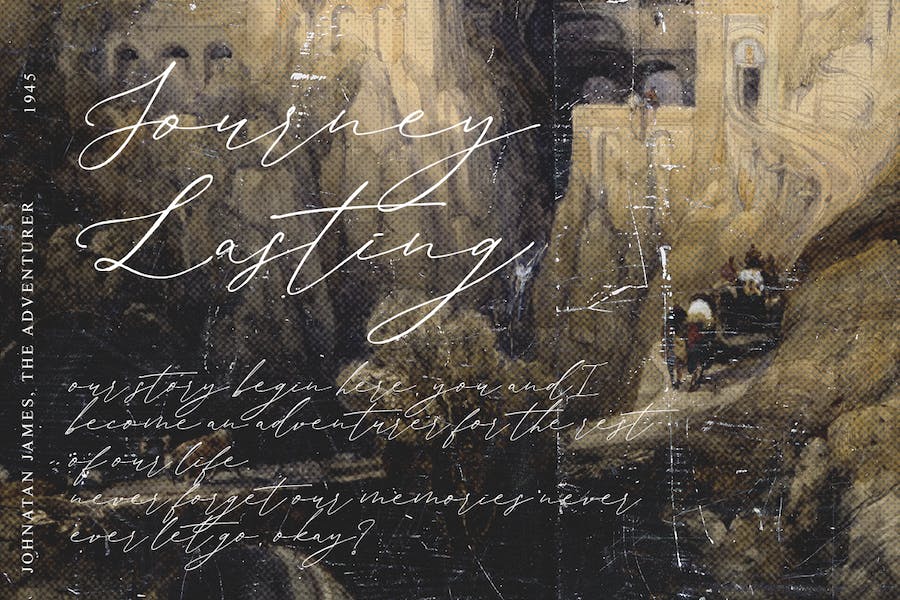 Journey
Lasting
our story begin here, you and I
become an adventurer for the rest
of our life.
never forget our memories never
ever let go, okay?
JOHNATAN JAMES, THE ADVENTURER
1945